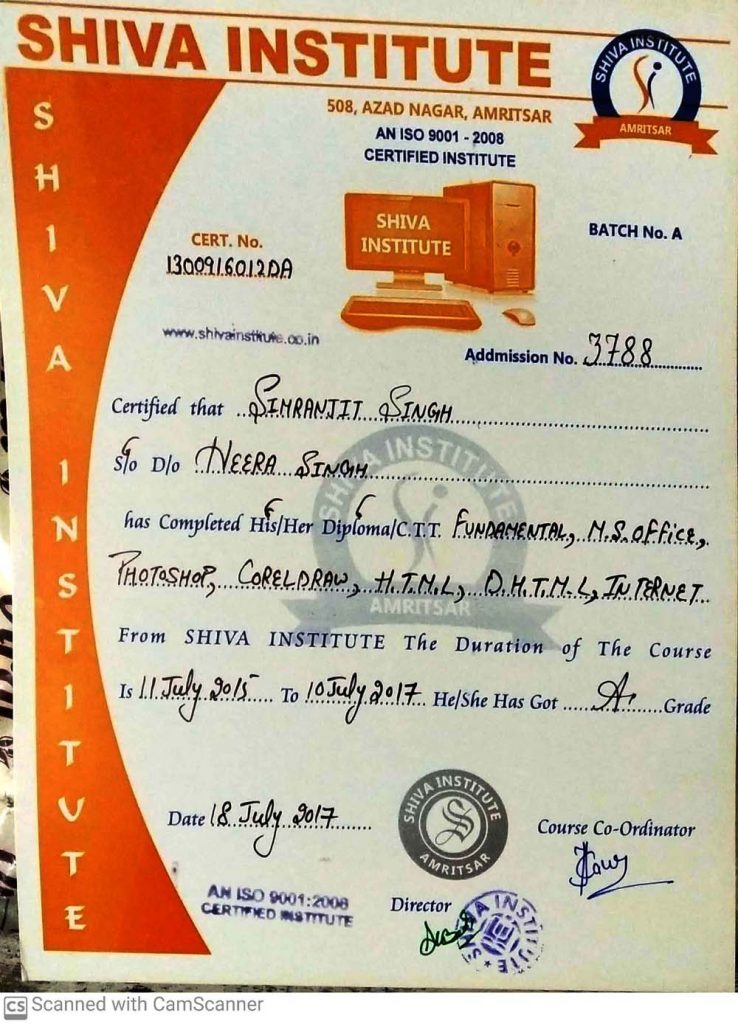 SHIVA INSTITUTE
SHIVA INSTITUTE
AMRITSAR
508, AZAD NAGAR, AMRITSAR
AN ISO 9001 - 2008
CERTIFIED INSTITUTE
SHIVA INSTITUTE
SHIVA
INSTITUTE
BATCH No. A
CERT. No.
1300916012DA
www.shivainstitute.co.in
Addmission No. 3788
Certified that SIMRANJIT SINGH
S/o D/o HEERA SINGH
has Completed His/Her Diploma/C.T.T. FUNDAMENTAL, M.S.OFFICE,
PHOTOSHOP, CORELDRAW, H.T.M.L, D.H.T.M.L, INTERNET
SHIVA INSTITUTE
AMRITSAR
From SHIVA INSTITUTE The Duration of The Course
Is 11 July 2015 To 10 July 2017 He/She Has Got A Grade
Date 18 July 2017
SHIVA INSTITUTE
AMRITSAR
Course Co-Ordinator
AN ISO 9001:2008
CERTIFIED INSTITUTE
Director
SHIVA INSTITUTE
CS Scanned with CamScanner